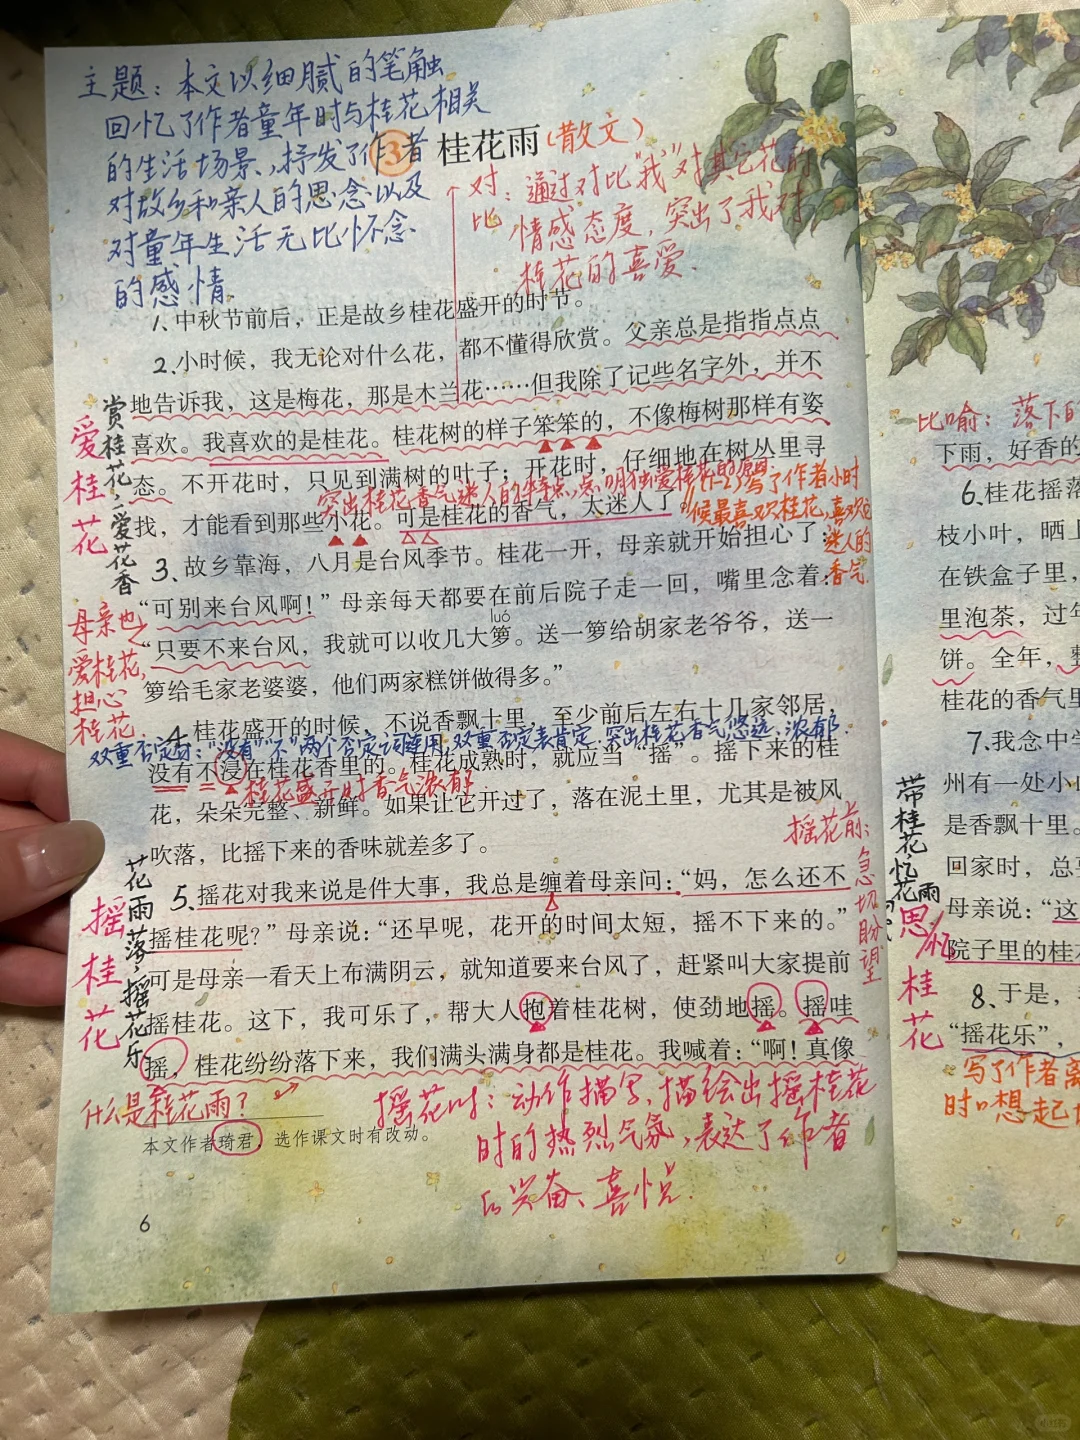 主题：本文以细腻的笔触
回忆了作者童年时与桂花相关
的生活场景，抒发了作者
对故乡和亲人的思念以及
对童年生活无比怀念
的感情.
3 桂花雨(散文)
对比：通过对比"我"对其它花的
情感态度，突出了我对
桂花的喜爱.
1、中秋节前后，正是故乡桂花盛开的时节。
2、小时候，我无论对什么花，都不懂得欣赏。父亲总是指指点点
地告诉我，这是梅花，那是木兰花……但我除了记些名字外，并不
喜欢。我喜欢的是桂花。桂花树的样子笨笨的，不像梅树那样有姿
态。不开花时，只见到满树的叶子；开花时，仔细地在树丛里寻
找，才能看到那些小花。可是桂花的香气，太迷人了。
突出桂花香气迷人的特点，点明独爱桂花的原因
写了作者小时
候最喜欢桂花，喜欢它
迷人的
香气.
爱桂花
赏桂花，爱花香
3、故乡靠海，八月是台风季节。桂花一开，母亲就开始担心了：
“可别来台风啊！”母亲每天都要在前后院子走一回，嘴里念着：
luó
“只要不来台风，我就可以收几大箩。送一箩给胡家老爷爷，送一
箩给毛家老婆婆，他们两家糕饼做得多。”
母亲也
爱桂花，
担心
桂花.
4、桂花盛开的时候，不说香飘十里，至少前后左右十几家邻居，
双重否定句："没有""不"两个否定词连用，双重否定表肯定，突出桂花香气悠远、浓郁
没有不浸在桂花香里的。桂花成熟时，就应当“摇”。摇下来的桂
桂花盛开时香气浓郁
花，朵朵完整、新鲜。如果让它开过了，落在泥土里，尤其是被风
吹落，比摇下来的香味就差多了。
摇花前：
急切盼望
5、摇花对我来说是件大事，我总是缠着母亲问：“妈，怎么还不
摇桂花呢？”母亲说：“还早呢，花开的时间太短，摇不下来的。”
可是母亲一看天上布满阴云，就知道要来台风了，赶紧叫大家提前
摇桂花。这下，我可乐了，帮大人抱着桂花树，使劲地摇。摇哇
摇，桂花纷纷落下来，我们满头满身都是桂花。我喊着：“啊！真像
摇桂花
花雨落，摇花乐
什么是桂花雨？
摇花时：动作描写，描绘出摇桂花
时的热烈气氛，表达了作者
的兴奋、喜悦.
本文作者琦君，选作课文时有改动。
6
比喻：落下的
下雨，好香的
6、桂花摇落
枝小叶，晒上
在铁盒子里，
里泡茶，过年
饼。全年，整
桂花的香气里
7、我念中学
州有一处小山
是香飘十里。
回家时，总要
母亲说：“这
院子里的桂花
带桂花，忆花雨
思/忆桂花
8、于是，
“摇花乐”，
写了作者离
时，想起